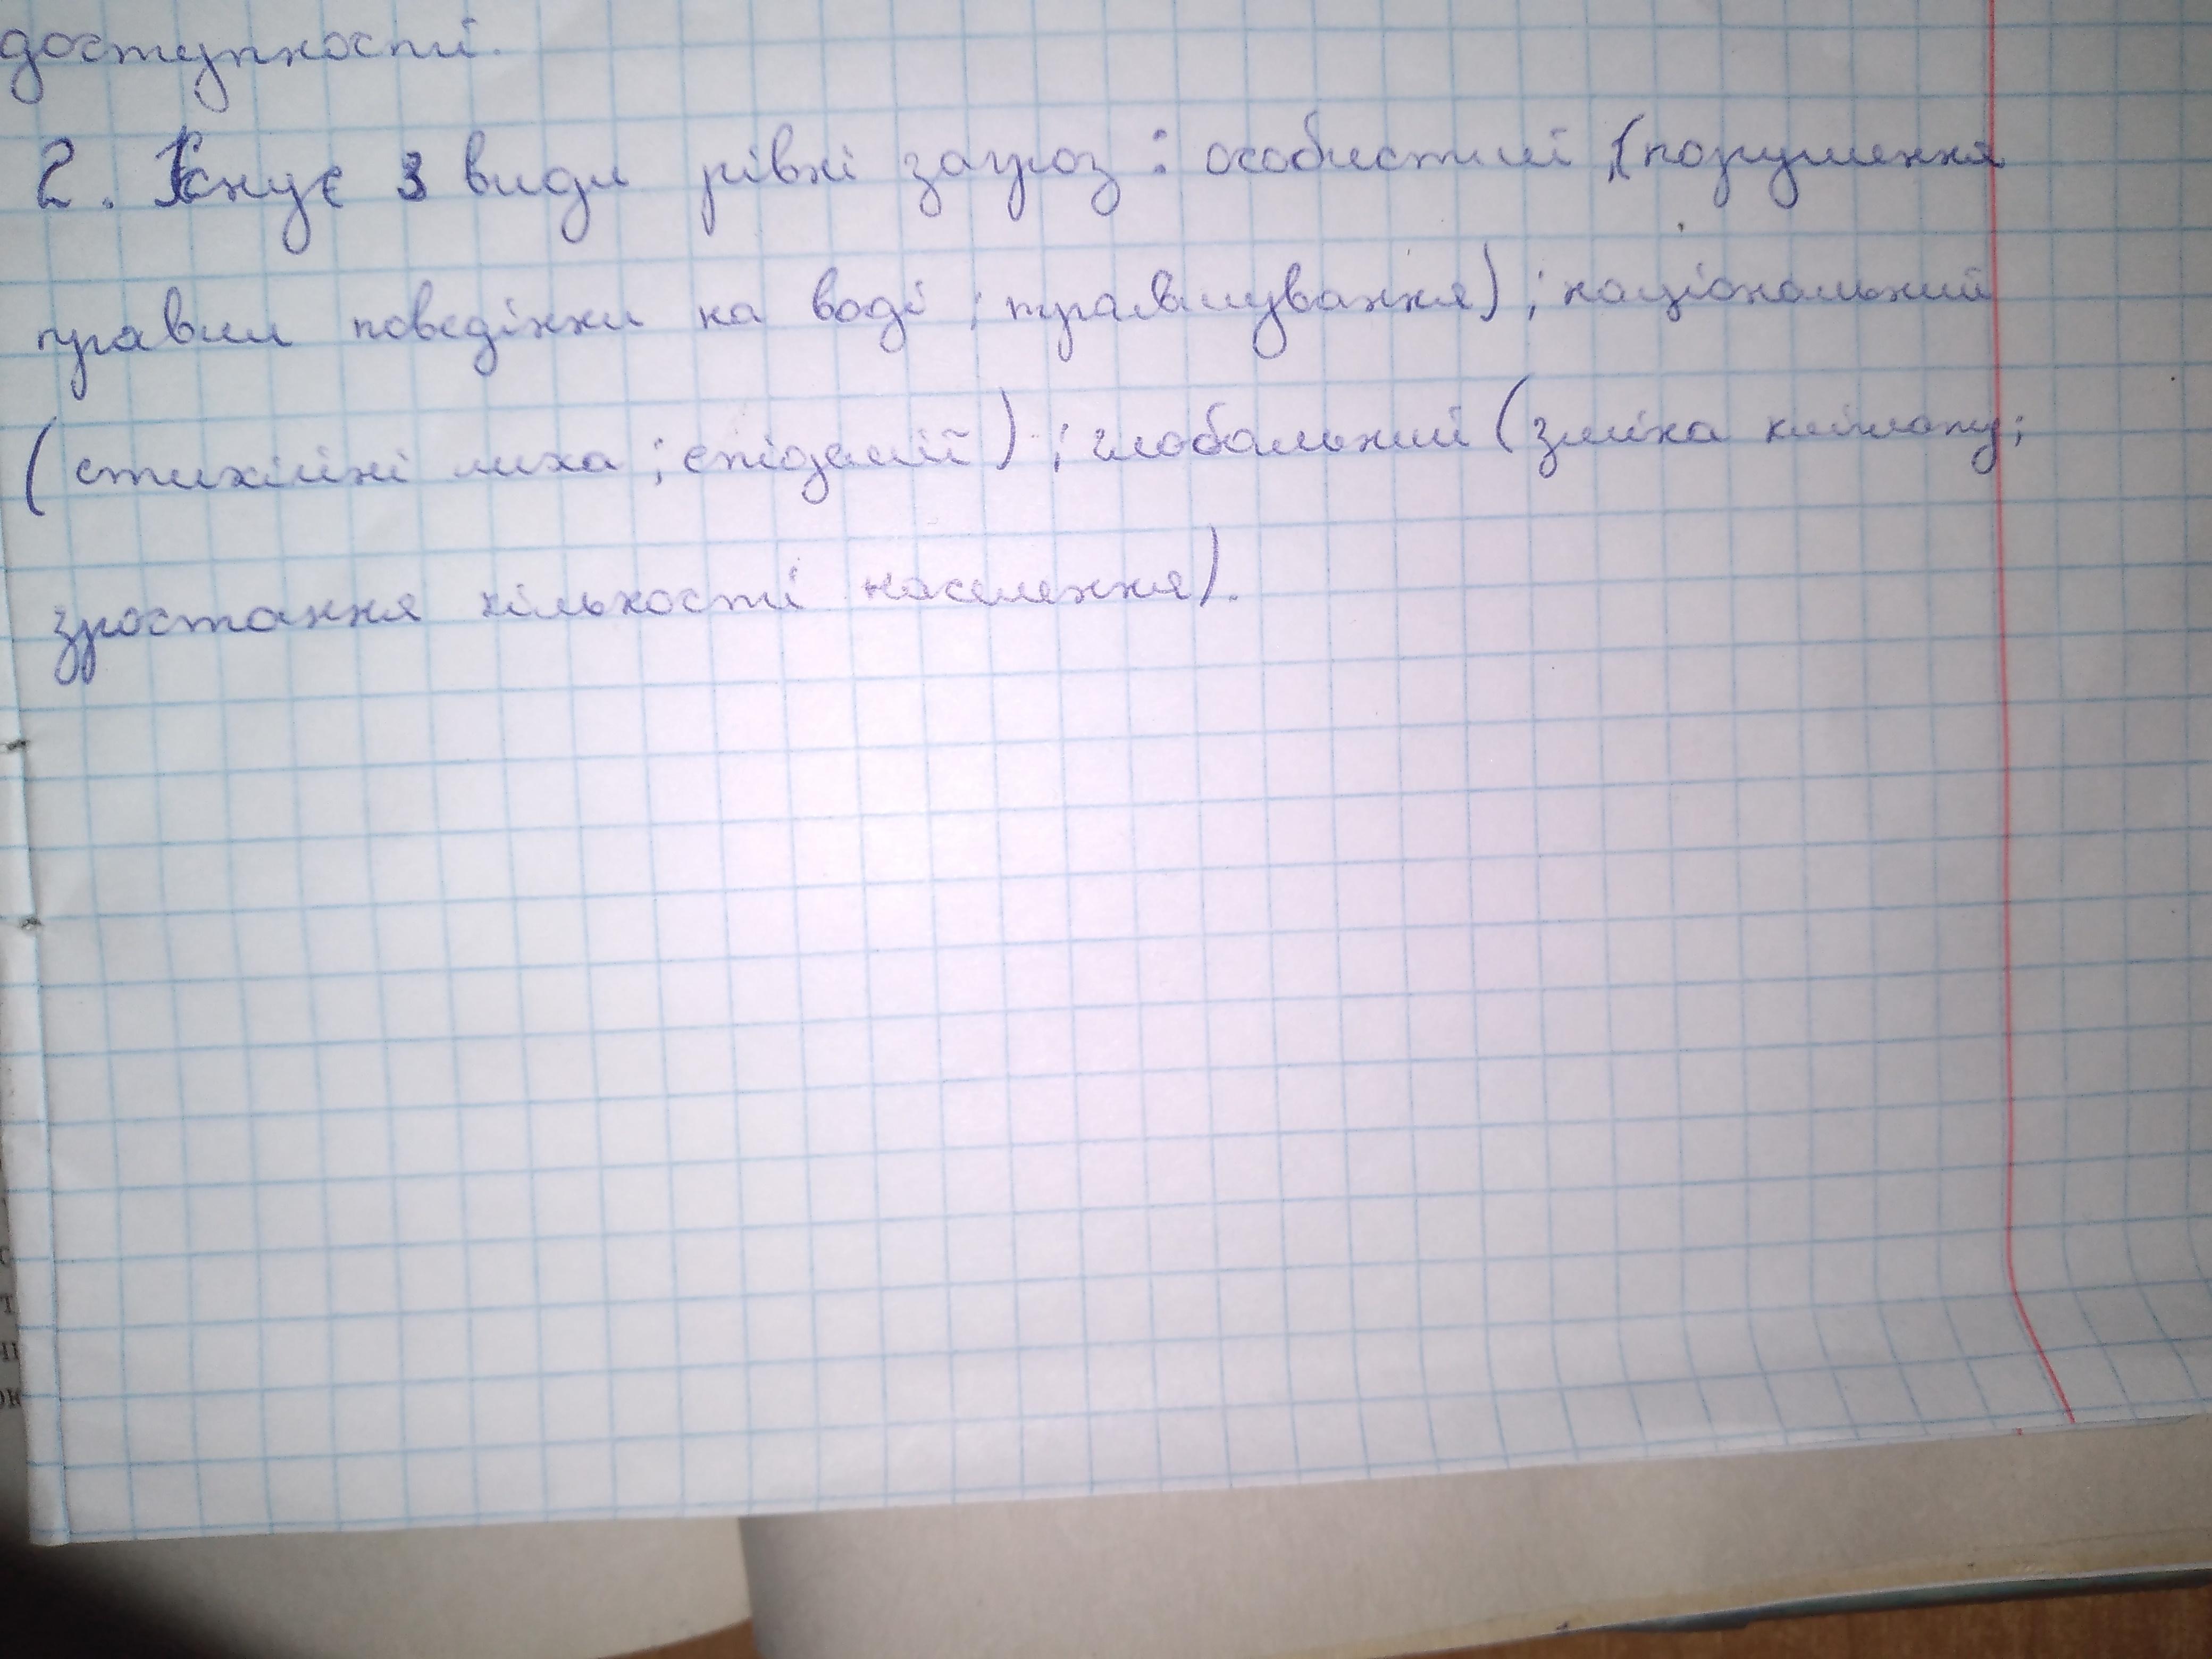 доступності.
2. Існує 3 види рівні загроз : особистий (порушення
правил поведінки на воді ; травмування) ; національний
(стихійні лиха ; епідемії) ; глобальний (зміна клімату ;
зростання кількості населення).